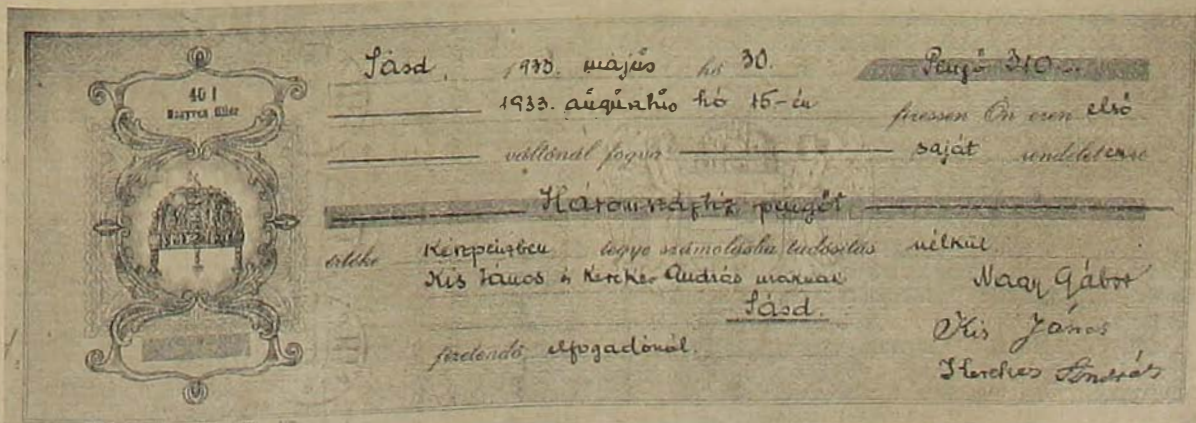 40 f
Negyven fillér
Sásd, 1933. május hó 30. Pengő 310.-
1933. augusztus hó 15-én fizessen Ön ezen első
váltónál fogva saját rendeletemre
Háromszáztiz pengőt
értéke készpénzben tegye számolásba tudósítás nélkül
Kis János és Kerekes András uraknak Nagy Gábor
Sásd. Kis János
fizetendő elfogadónál. Kerekes András